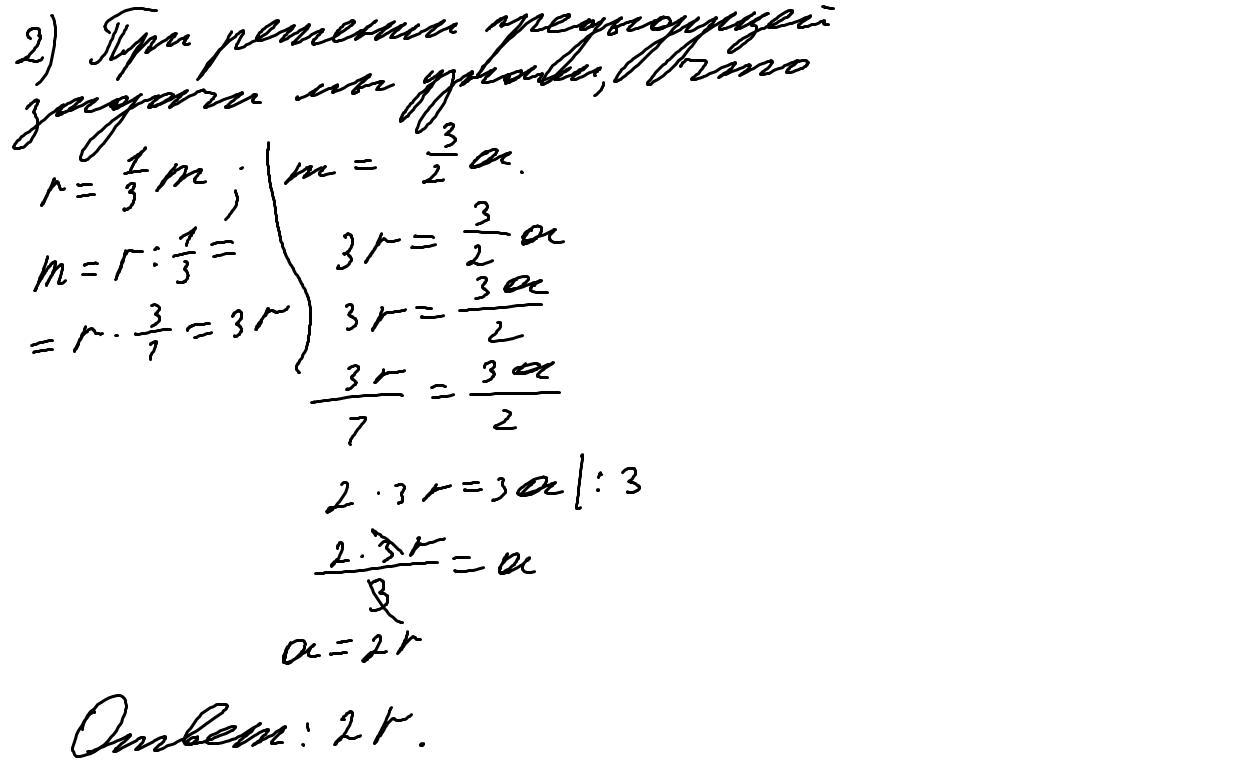 2) При решении предыдущей
задачи мы узнали, что
r = 1/3 m ; m = 3/2 a.
m = r : 1/3 = 3r = 3/2 a
= r · 3/1 = 3r 3r = 3a/2
3r/1 = 3a/2
2 · 3r = 3a | : 3
2 · 3r/3 = a
a = 2r
Ответ: 2r.